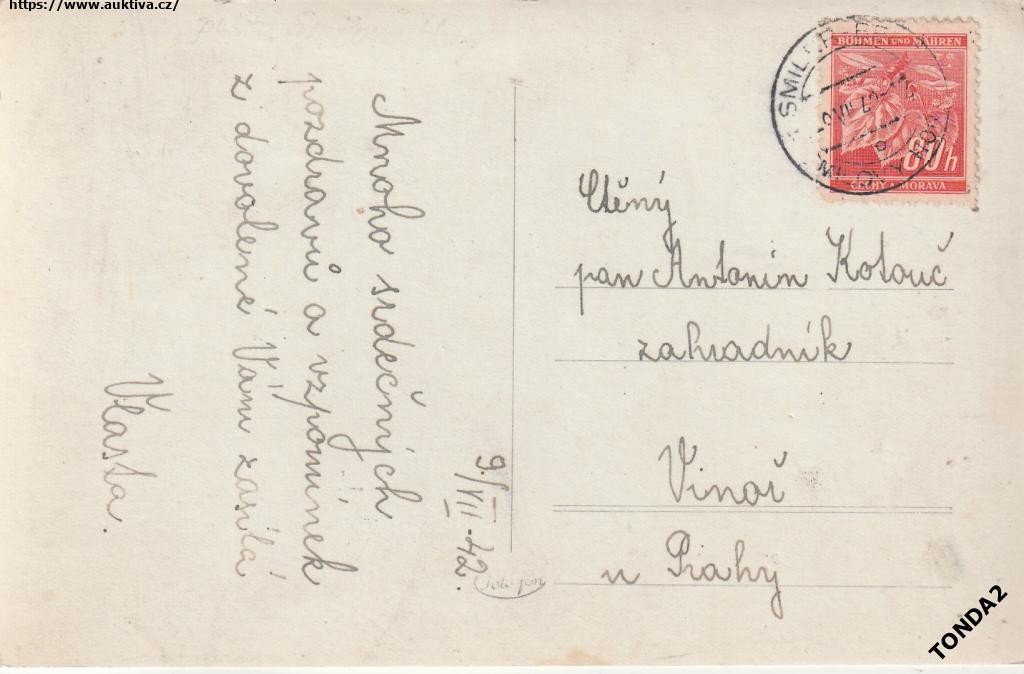 https://www.auktiva.cz/
9./VII-42.
Mnoho srdečných
pozdravů a vzpomínek
z dovolené Vám zasílá
Vlasta.
BÖHMEN UND MÄHREN
60 h
ČECHY A MORAVA
Ctěný
pan Antonín Kotouč
zahradník
Vinoř
u Prahy
TONDA2